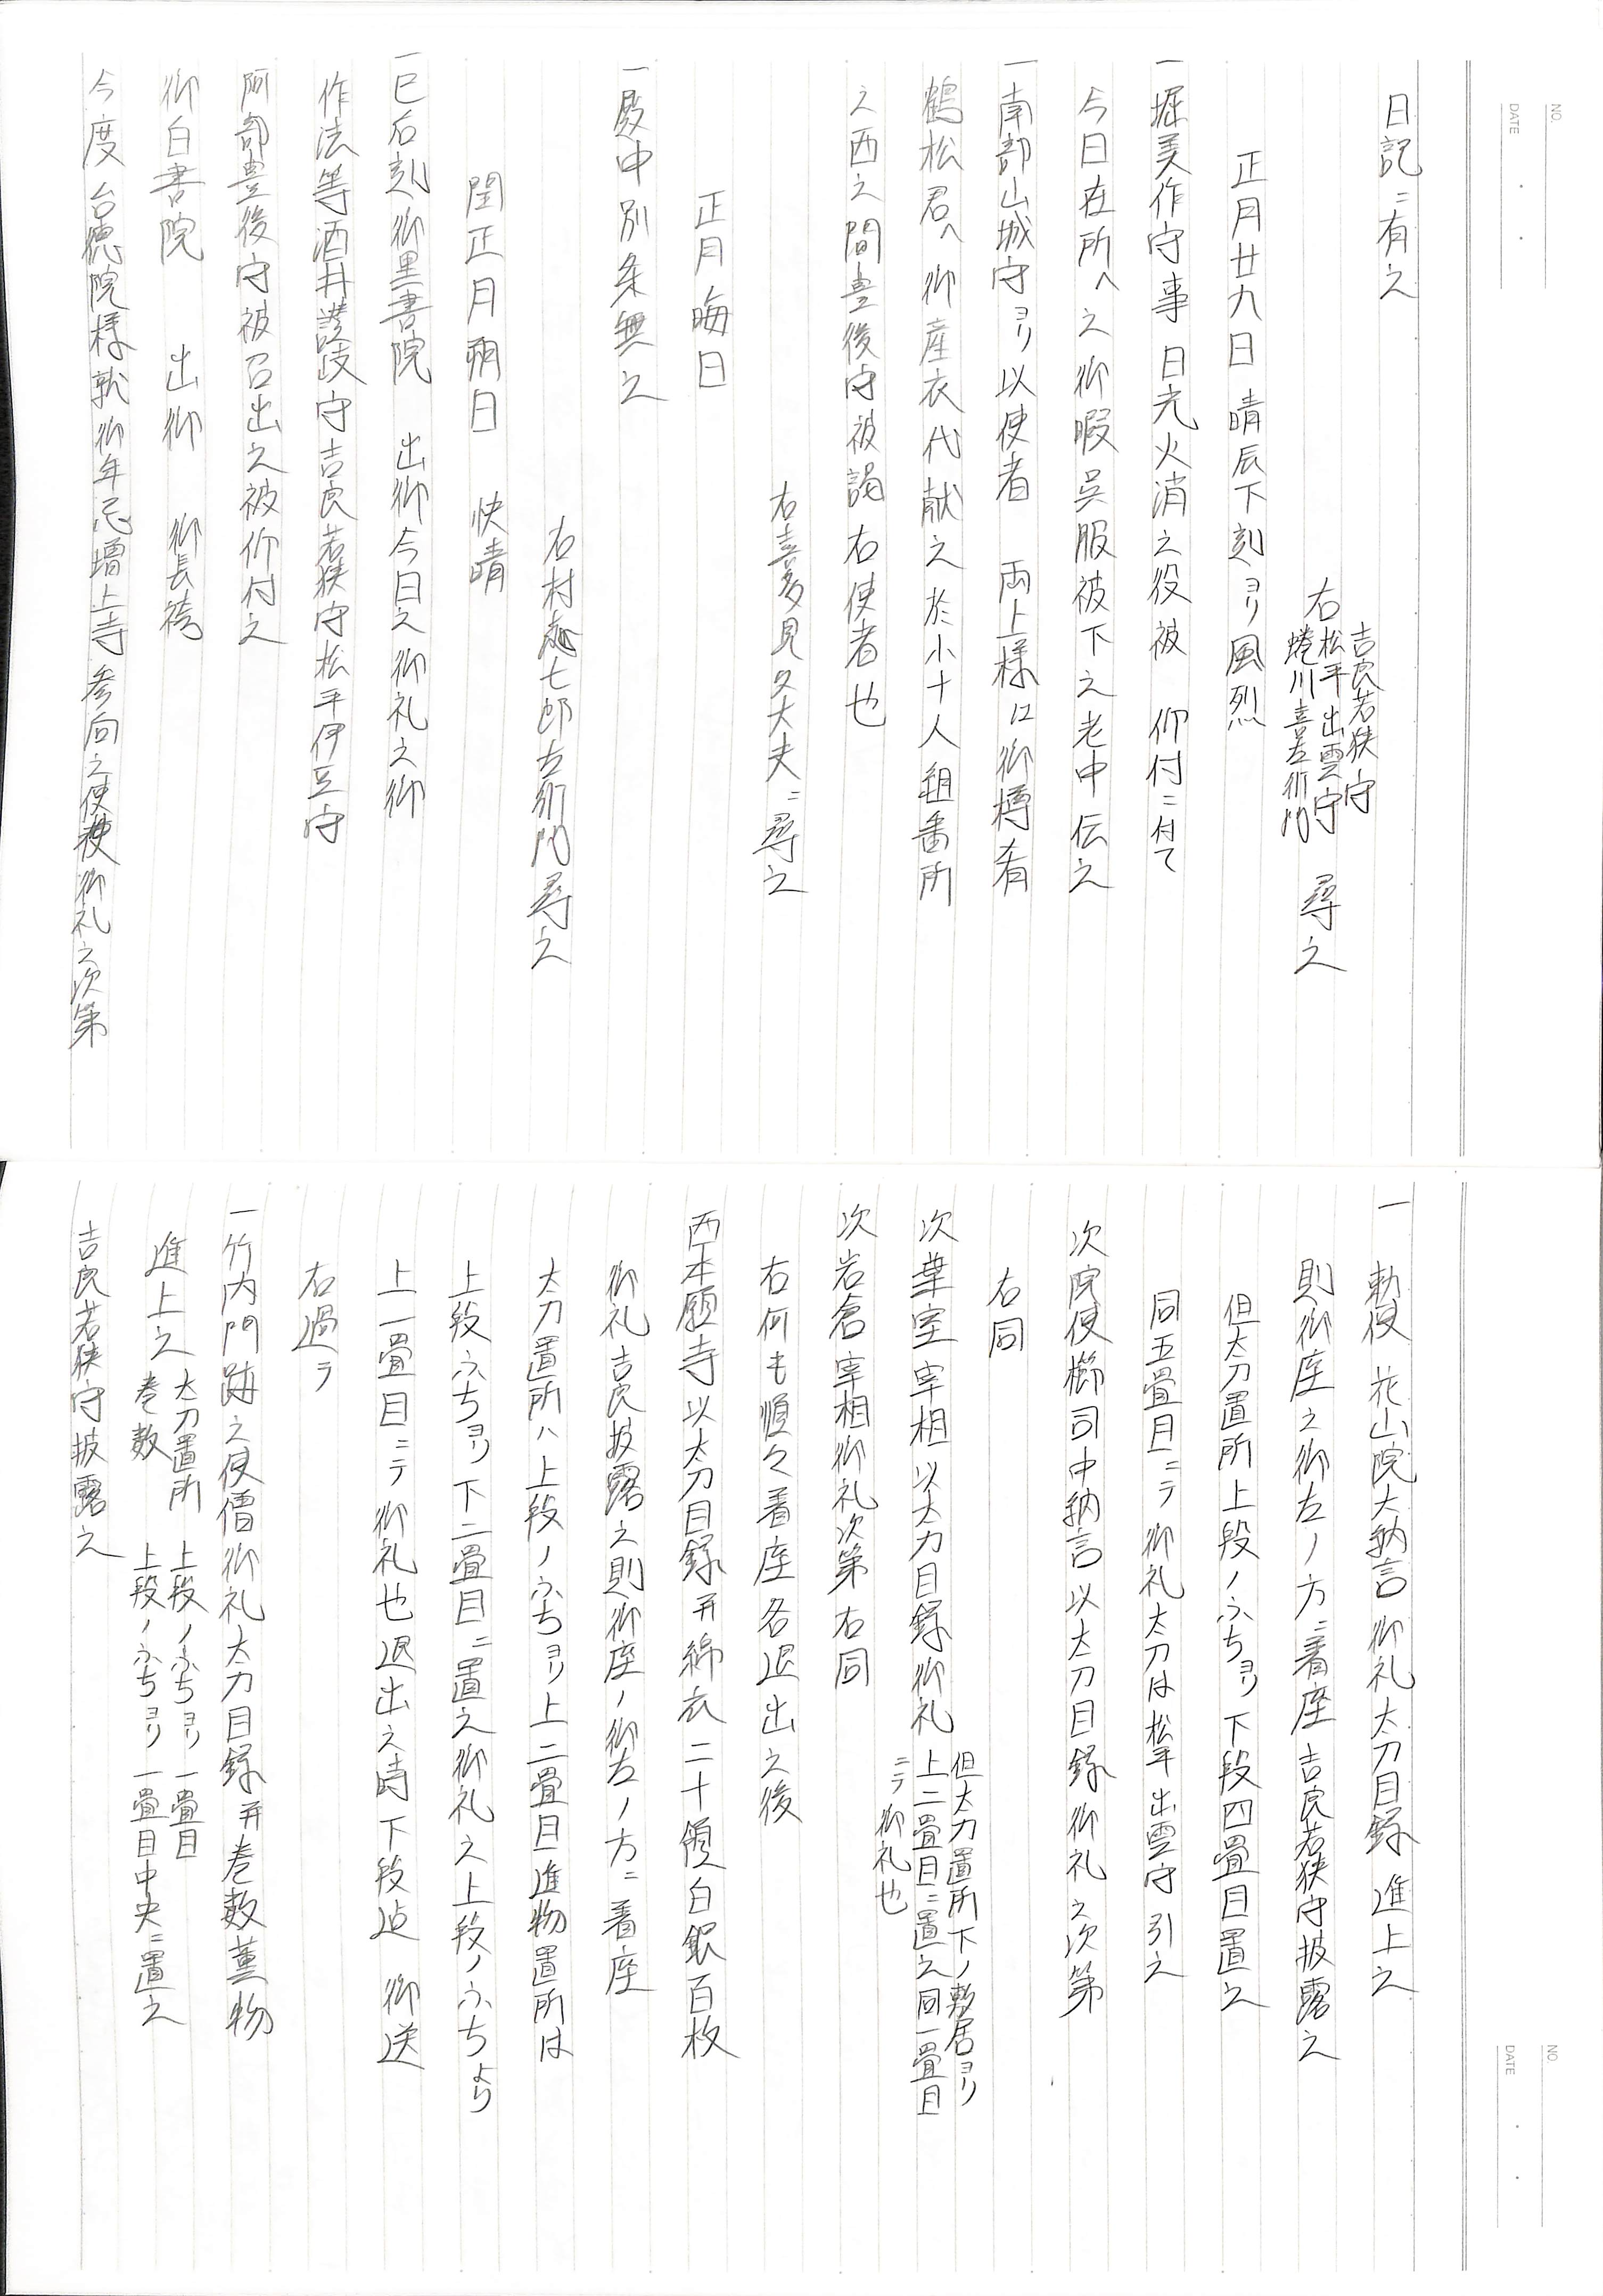 NO.
DATE
日記ニ有之
吉良若狭守
右松平出雲守 尋之
蜷川喜左衛門
正月廿九日 晴辰下刻ヨリ風烈
一堀美作守事 日光火消之役被 仰付ニ付て
今日在所へ之御暇呉服被下之老中伝之
一南部山城守ヨリ以使者 両上様江御樽肴
鶴松君へ御産衣代献之於小十人組番所
之西之間豊後守被謁右使者也
右喜多見久大夫ニ尋之
正月晦日
一殿中別条無之
右村越七郎左衛門尋之
閏正月朔日 快晴
一巳后刻御黒書院 出御今日之御礼之御
作法等酒井讃岐守吉良若狭守松平伊豆守
阿部豊後守被召出之被仰付之
御白書院 出御 御長袴
今度 台徳院様就御年忌増上寺参向之使 御礼之次第
NO.
DATE
一 勅使 花山院大納言御礼太刀目録 進上之
則御座之御左ノ方ニ着座吉良若狭守披露之
但太刀置所上段ノふちヨリ下段四畳目置之
同五畳目ニテ御礼太刀は松平出雲守引之
次院使櫛司中納言以太刀目録御礼之次第
右同
次葉室宰相以太刀目録御礼 但太刀置所下ノ敷居ヨリ
上二畳目ニ置之同一畳目
ニテ御礼也
次岩倉宰相御礼次第右同
右何も順々着座各退出之後
西本願寺以太刀目録并綿衣二十領白銀百枚
御礼吉良披露之則御座ノ御左ノ方ニ着座
太刀置所ハ上段ノふちヨリ上二畳目進物置所は
上段ふちヨリ下二畳目ニ置之御礼之上段ノふちより
上一畳目ニテ御礼也退出之時下段迄 御送
右過テ
一竹内門跡之使僧御礼太刀目録并巻数薫物
進上之 太刀置所 上段ノふちヨリ一畳目
巻数 上段ノふちヨリ一畳目中央ニ置之
吉良若狭守披露之